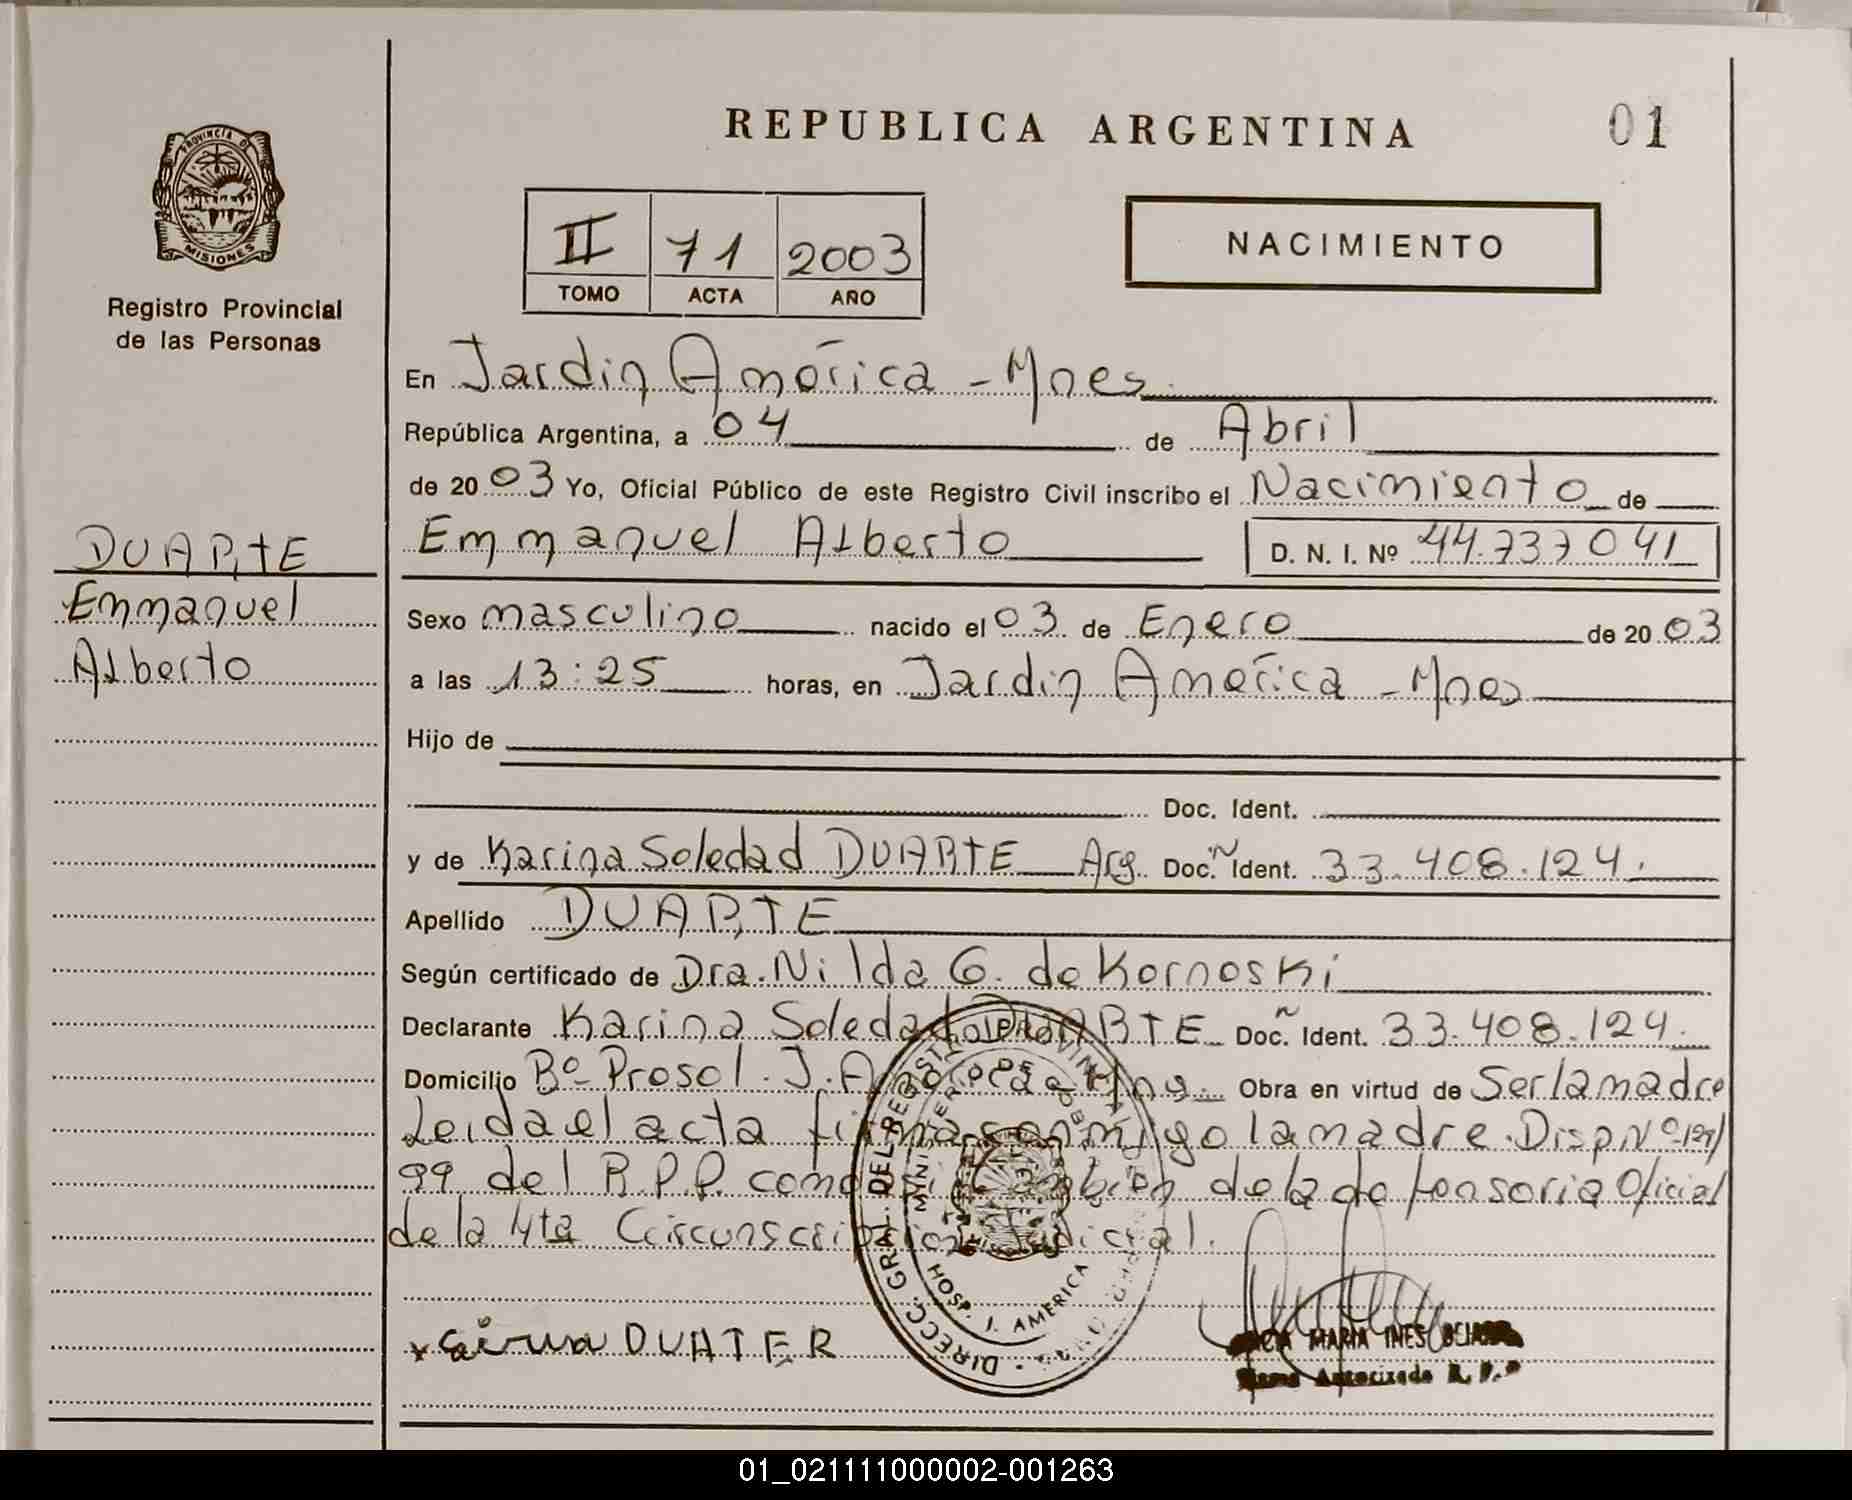 REPUBLICA ARGENTINA
01
PROVINCIA DE
MISIONES
Registro Provincial
de las Personas
II 71 2003
TOMO ACTA AÑO
NACIMIENTO
En Jardin América - Mnes.
República Argentina, a 04 de Abril
de 2003 Yo, Oficial Público de este Registro Civil inscribo el Nacimiento de
Emmanuel Alberto D. N. I. Nº 44.737041
DUARTE
Emmanuel
Alberto
Sexo masculino nacido el 03 de Enero de 2003
a las 13:25 horas, en Jardin América - Mnes
Hijo de
Doc. Ident.
y de Karina Soledad DUARTE Arg. Doc. N Ident. 33.408.124.
Apellido DUARTE
Según certificado de Dra. Nilda G. de Kornoski
Declarante Karina Soledad DUARTE Doc. N Ident. 33.408.124.
Domicilio Bº Prosol. J. América Mns. Obra en virtud de Ser la madre
Leida el acta firma conmigo la madre. Disp Nº
99 del R.P.P. como también de la defensoria Oficial
de la 4ta Circunscripción Judicial.
DIRECC. GRAL. DEL REGISTRO PROVINCIAL
MINISTERIO DE GOBIERNO
HOSP. J. AMERICA
DUATER
MARIA INES
Autorizada R. P. P
01_021111000002-001263